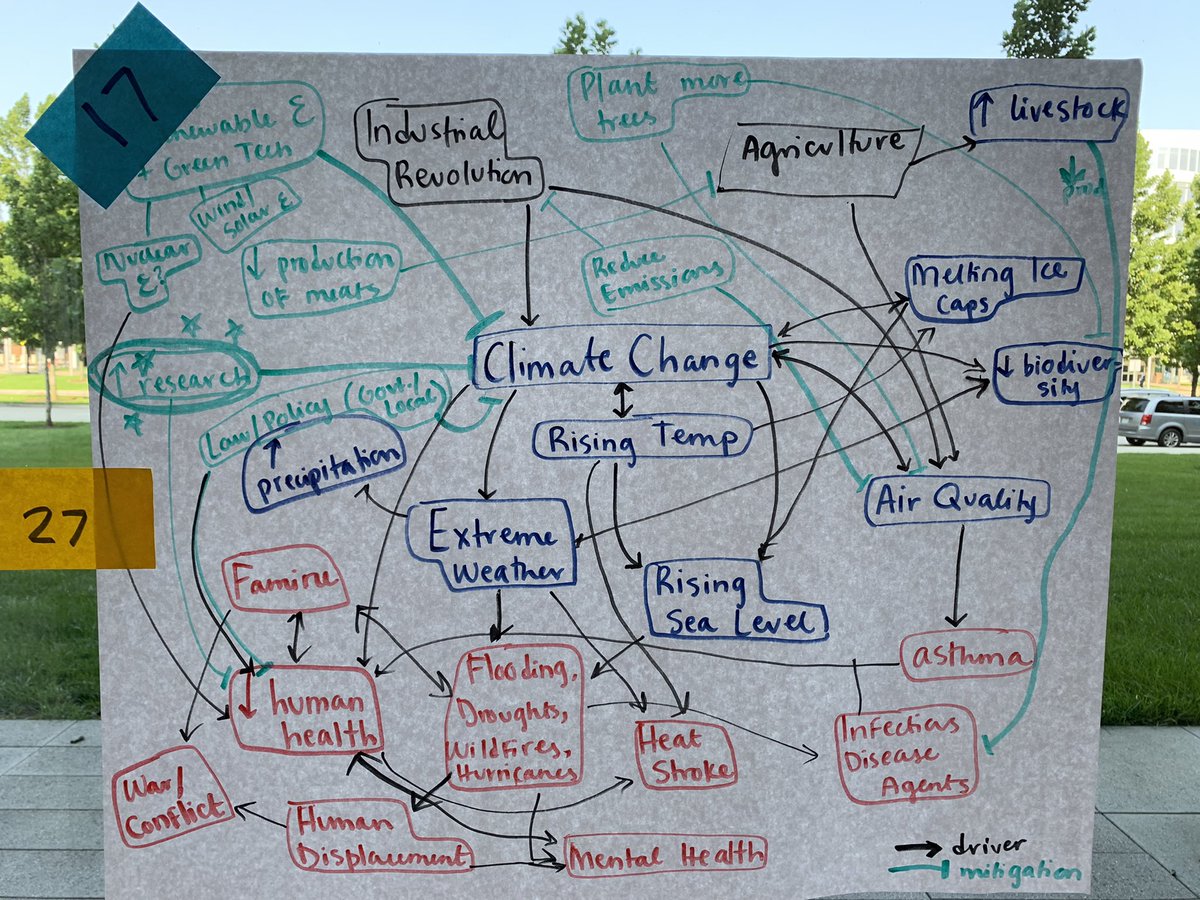 17
newable E
+ Green Tech
Wind/
Solar E
Nuclear
E?
↓ production
of meats
Industrial
Revolution
Plant more
trees
Agriculture
↑ livestock
Reduce
Emissions
Melting Ice
Caps
↓ biodiver-
sity
↑ research
Law/Policy (Govt./
Local)
Climate Change
Rising Temp
↑
precipitation
Extreme
Weather
Air Quality
27
Rising
Sea Level
Famine
↓ human
health
Flooding,
Droughts,
Wildfires,
Hurricanes
Heat
Stroke
asthma
Infectious
Disease
Agents
War/
Conflict
Human
Displacement
Mental Health
→ driver
⊣ mitigation